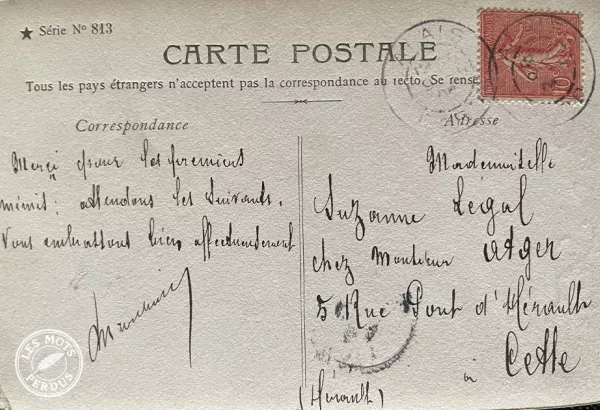 ★ Série Nº 813
CARTE POSTALE
Tous les pays étrangers n'acceptent pas la correspondance au recto. Se rense
Correspondance
Adresse
Merçi pour les premiers
attendons les suivants.
Vous embrassons bien affectueusement
Mademoiselle
Suzanne Légal
chez Monsieur Atger
5 Rue Pont d'Hérault
à Cette
(Hérault)
LES MOTS
PERDUS
10